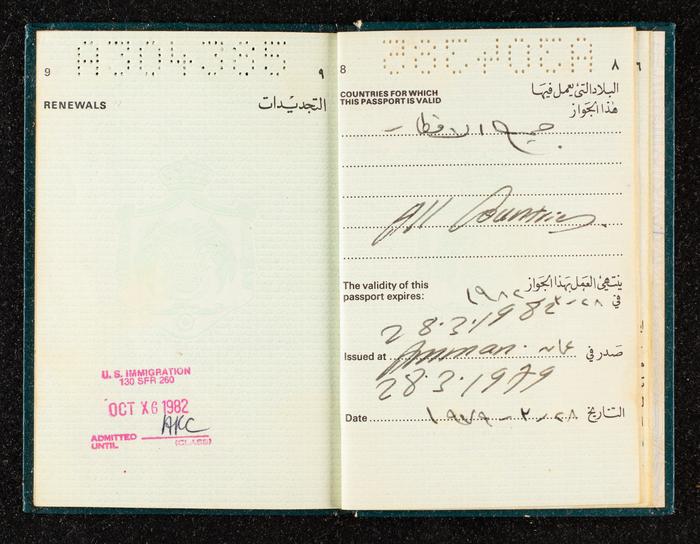 9
٩
RENEWALS
التجديدات
U. S. IMMIGRATION
130 SFR 260
OCT X6 1982
AKC
ADMITTED
UNTIL
(CLASS)
8
٨
COUNTRIES FOR WHICH
THIS PASSPORT IS VALID
البلاد التي يعمل فيها
هذا الجواز
جميع الاقطار
All Countries.
ينتهي العمل بهذا الجواز
The validity of this
passport expires:
في ٢٨-٣-١٩٨٢
28.3.1982
Issued at Amman. عمان صدر في
28.3.1979
Date ١٩٧٩-٣-٢٨ التاريخ
٦